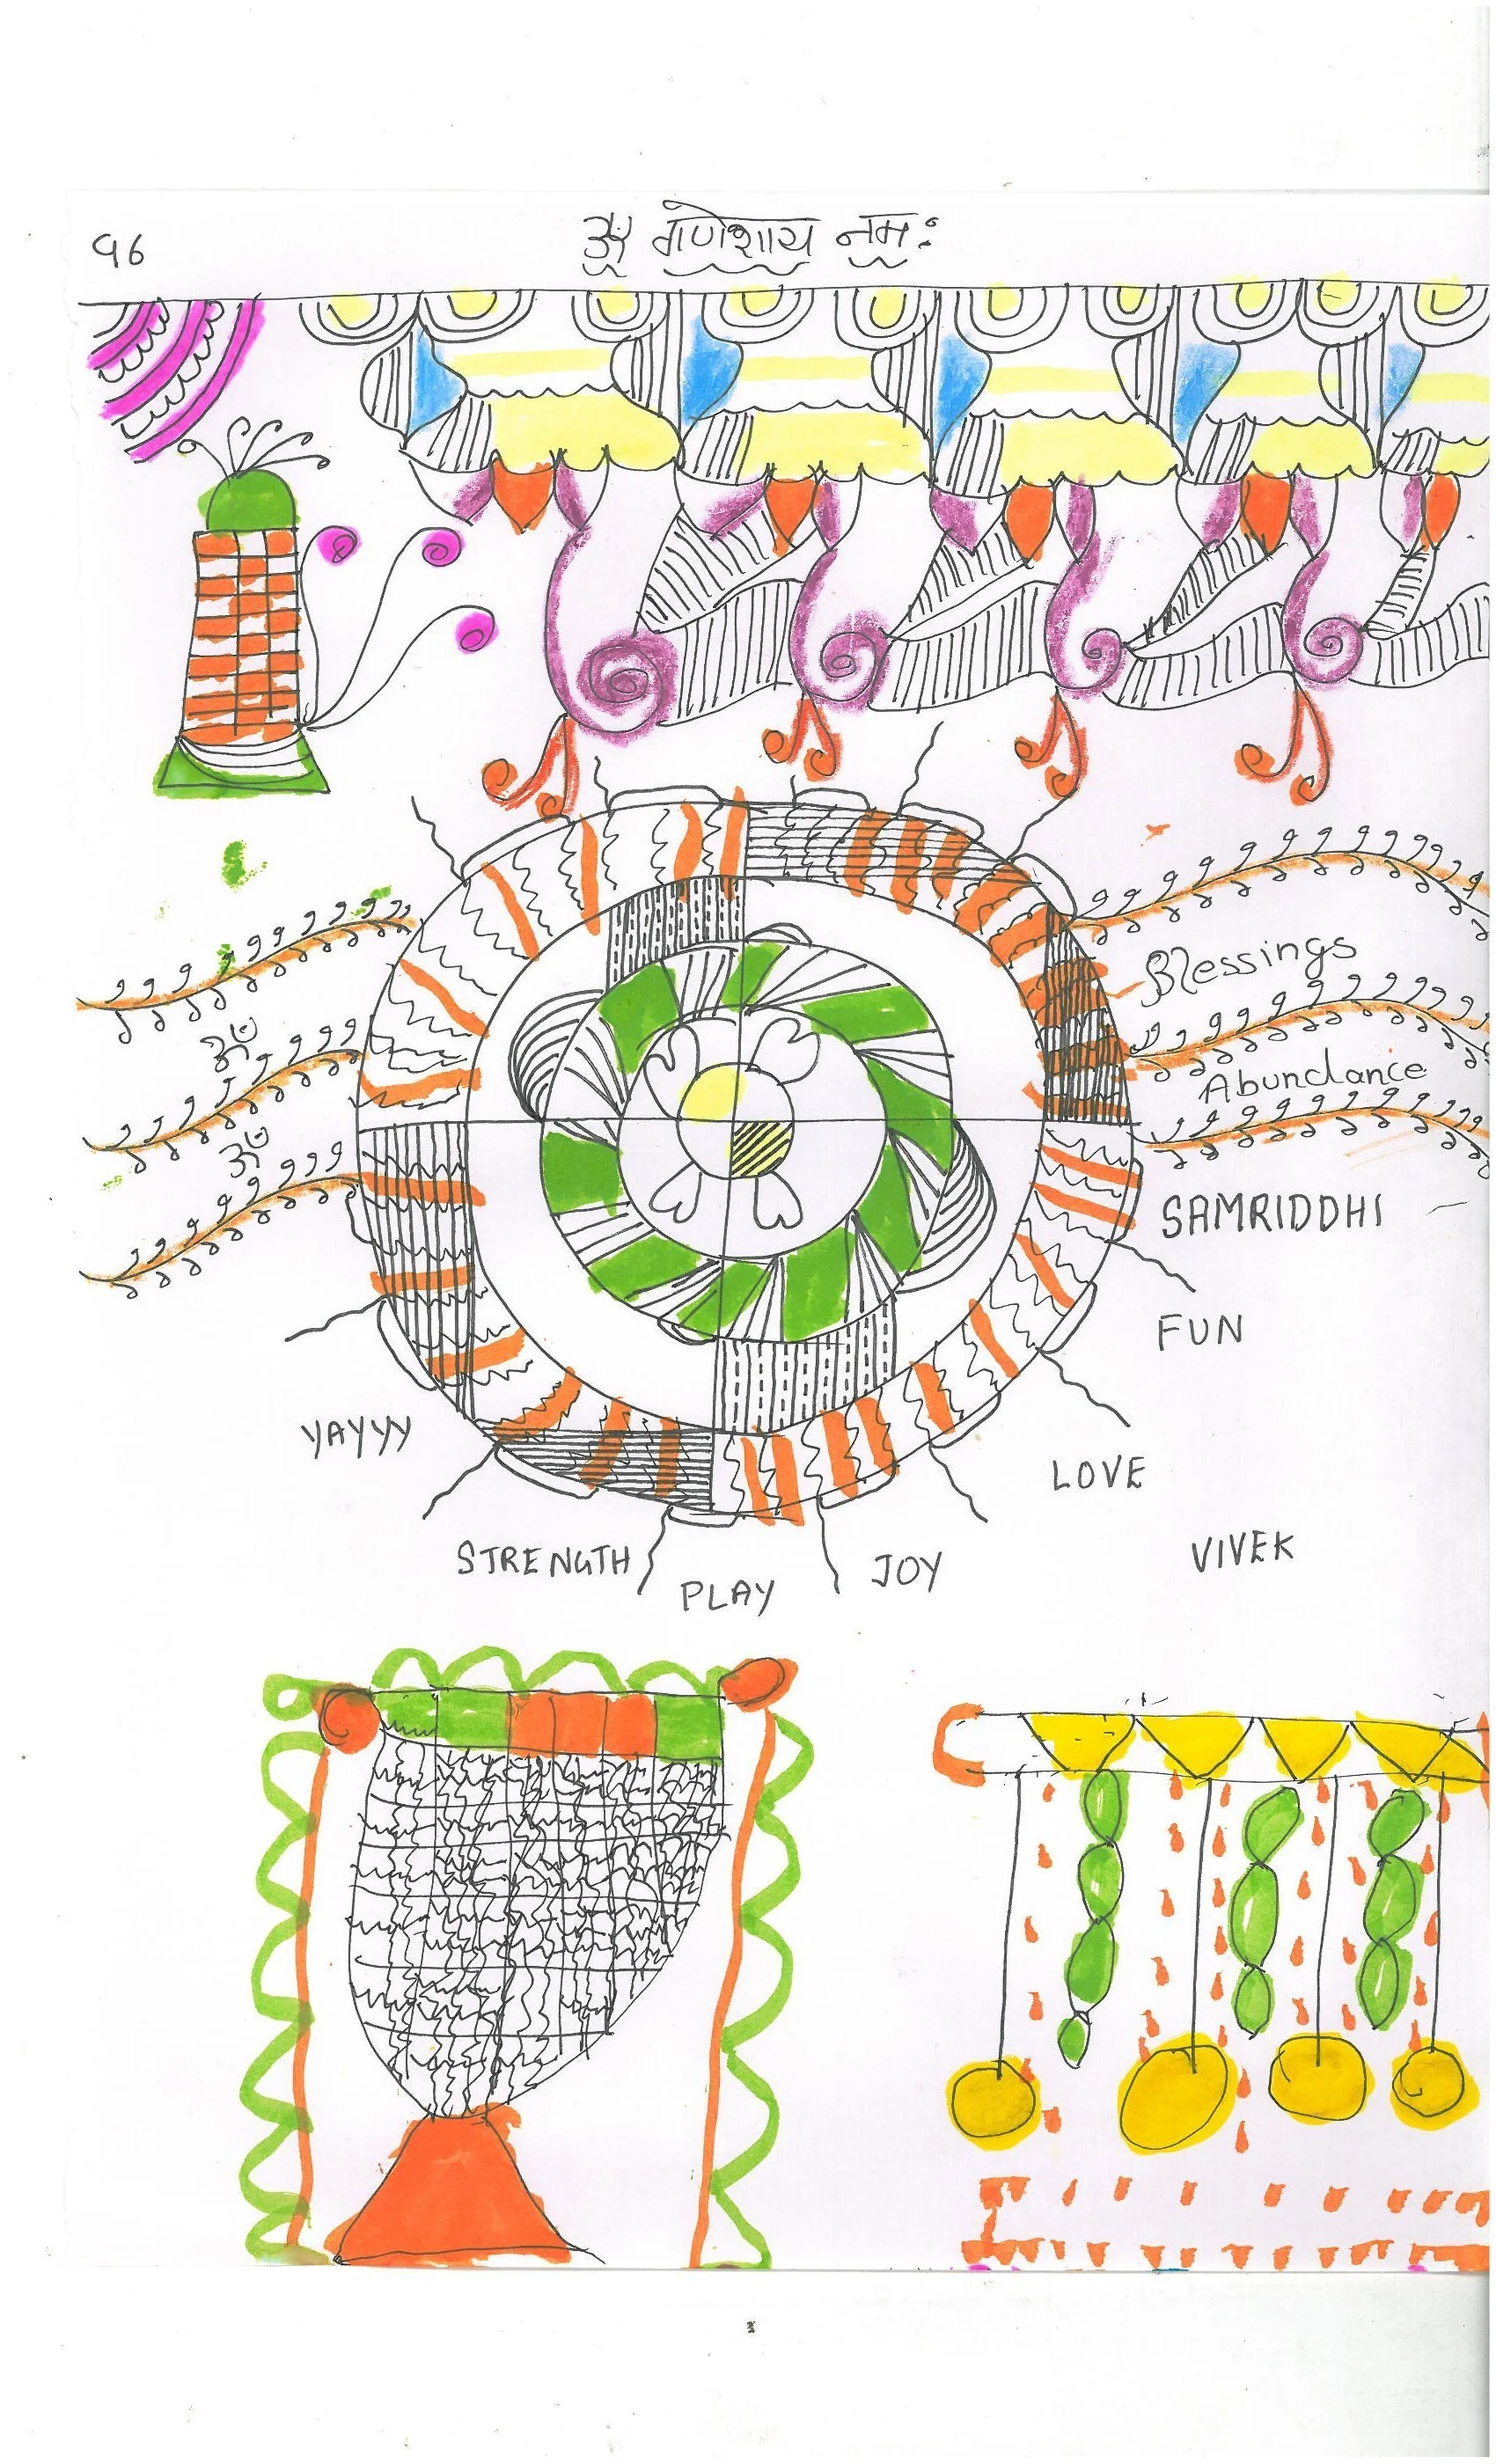 96
ॐ गणेशाय नमः
Blessings
ॐ
Abundance
ॐ
SAMRIDDHI
FUN
YAYYY
LOVE
STRENGTH
PLAY
JOY
VIVEK